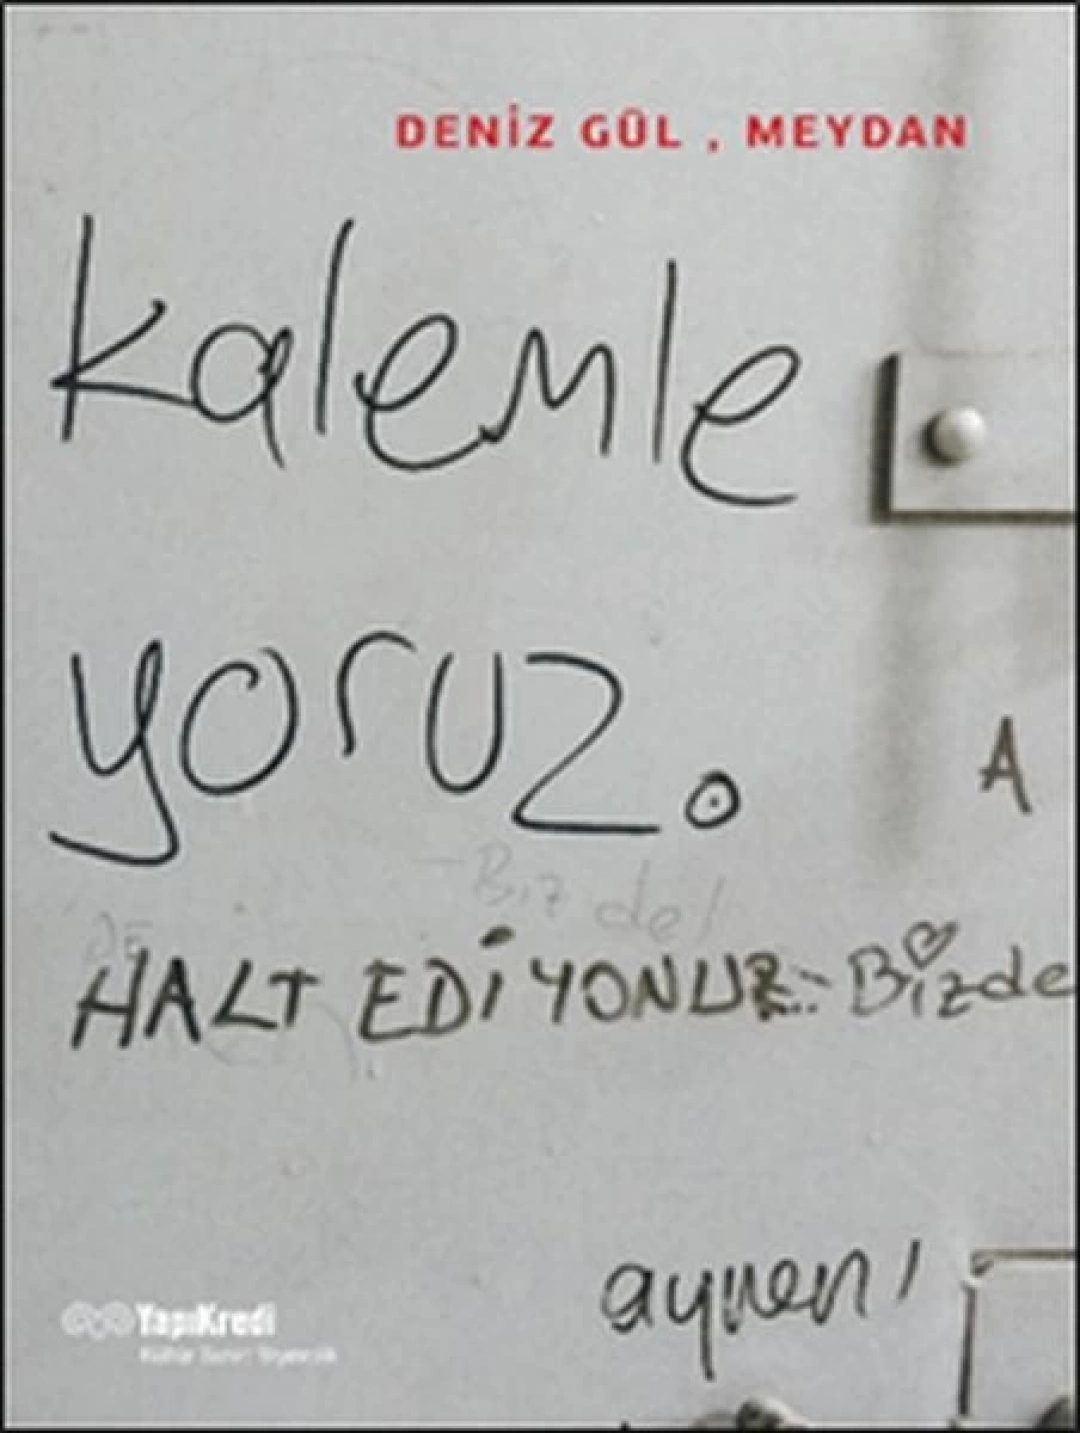 DENİZ GÜL , MEYDAN
kalemle
yoruz.
A
- Biz de!
HALT EDİYONUZ - Bizde
aynen!
YapıKredi
Kültür Sanat Yayıncılık